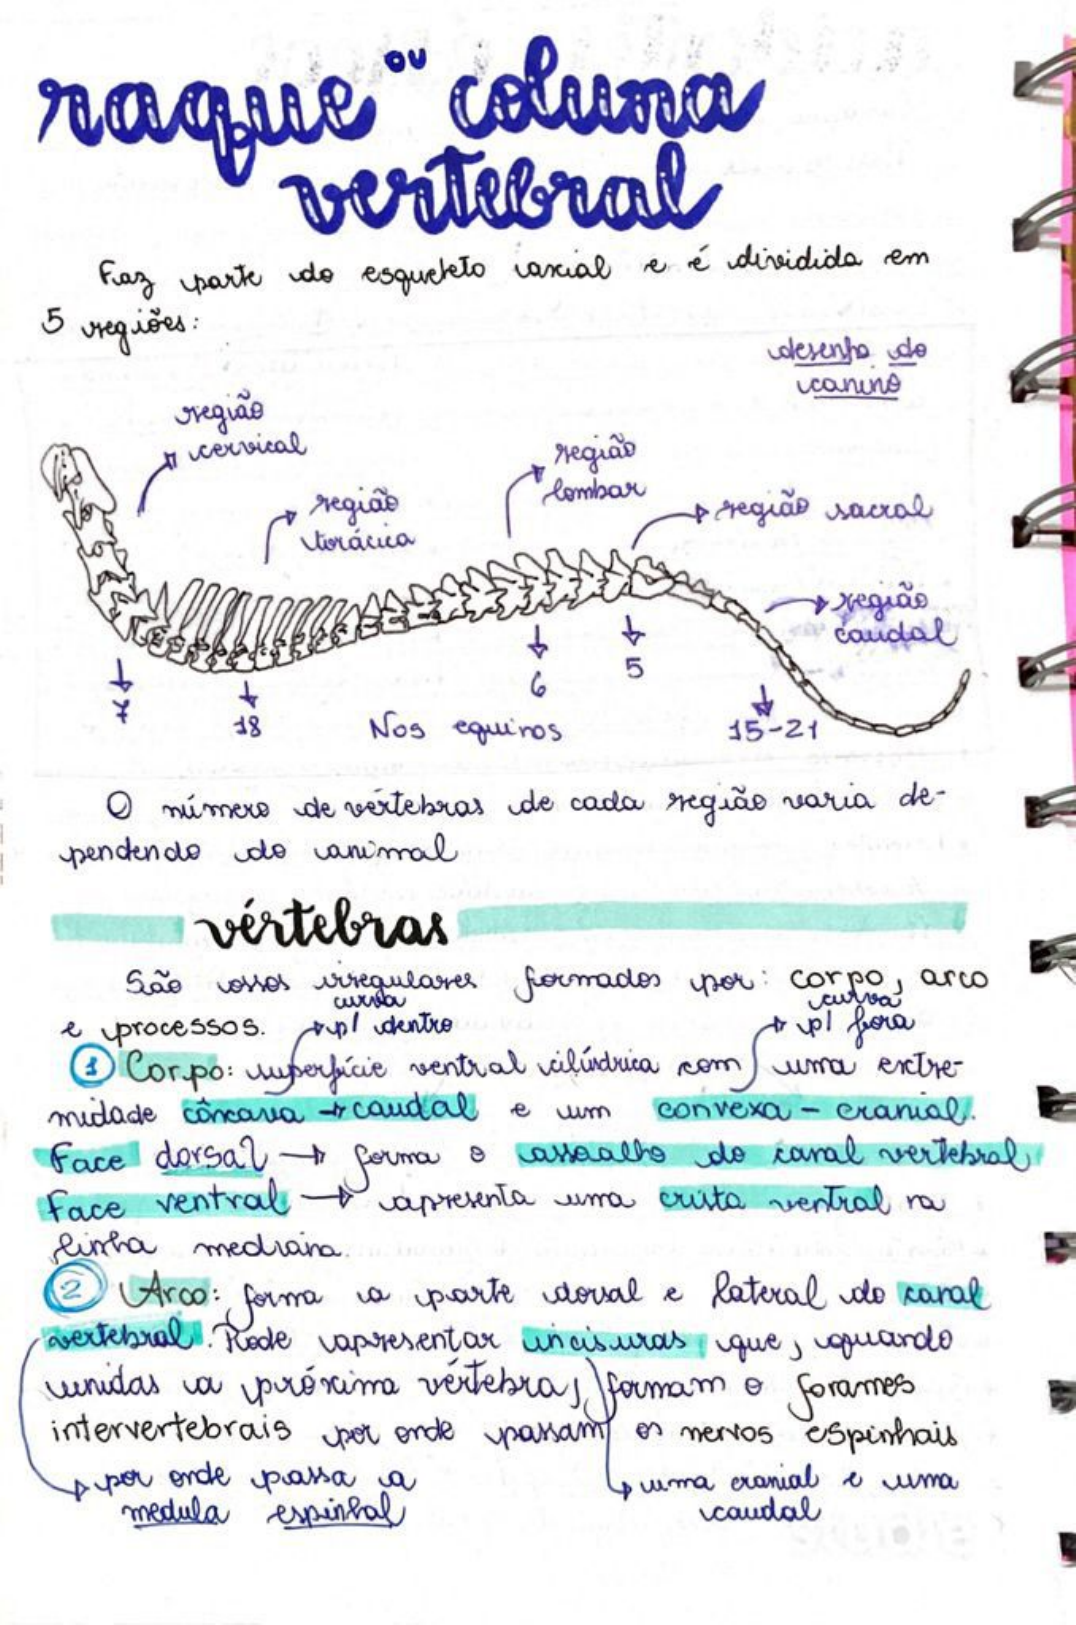 raque ou coluna
vertebral
Faz parte do esqueleto axial e é dividida em
5 regiões:
desenho do
canino
região
cervical
região
torácica
região
lombar
região sacral
região
caudal
7
18
Nos equinos
6
5
15-21
O número de vértebras de cada região varia de-
pendendo do animal
vértebras
São ossos irregulares formados por: corpo, arco
e processos.
curva
p/ dentro
curva
p/ fora
1 Corpo: superfície ventral cilíndrica com uma extre-
midade côncava → caudal e um convexa - cranial.
Face dorsal → forma o assoalho do canal vertebral
Face ventral → apresenta uma crista ventral na
linha mediana.
2 Arco: forma a parte dorsal e lateral do canal
vertebral. Pode apresentar incisuras que, quando
unidas a próxima vértebra, formam o forames
intervertebrais por onde passam os nervos espinhais
por onde passa a
medula espinhal
uma cranial e uma
caudal